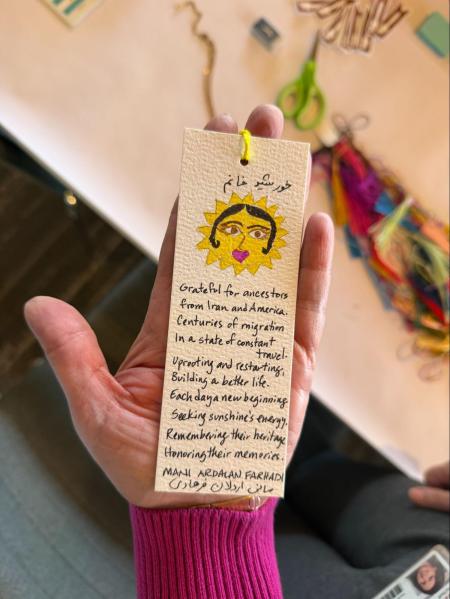 خورشید خانم
Grateful for ancestors
from Iran and America.
Centuries of migration
In a state of constant
travel.
Uprooting and restarting,
Building a better life.
Each day a new beginning
Seeking sunshine's energy.
Remembering their heritage
Honoring their memories.
MANI ARDALAN FARHADI
مانی اردلان فرهادی